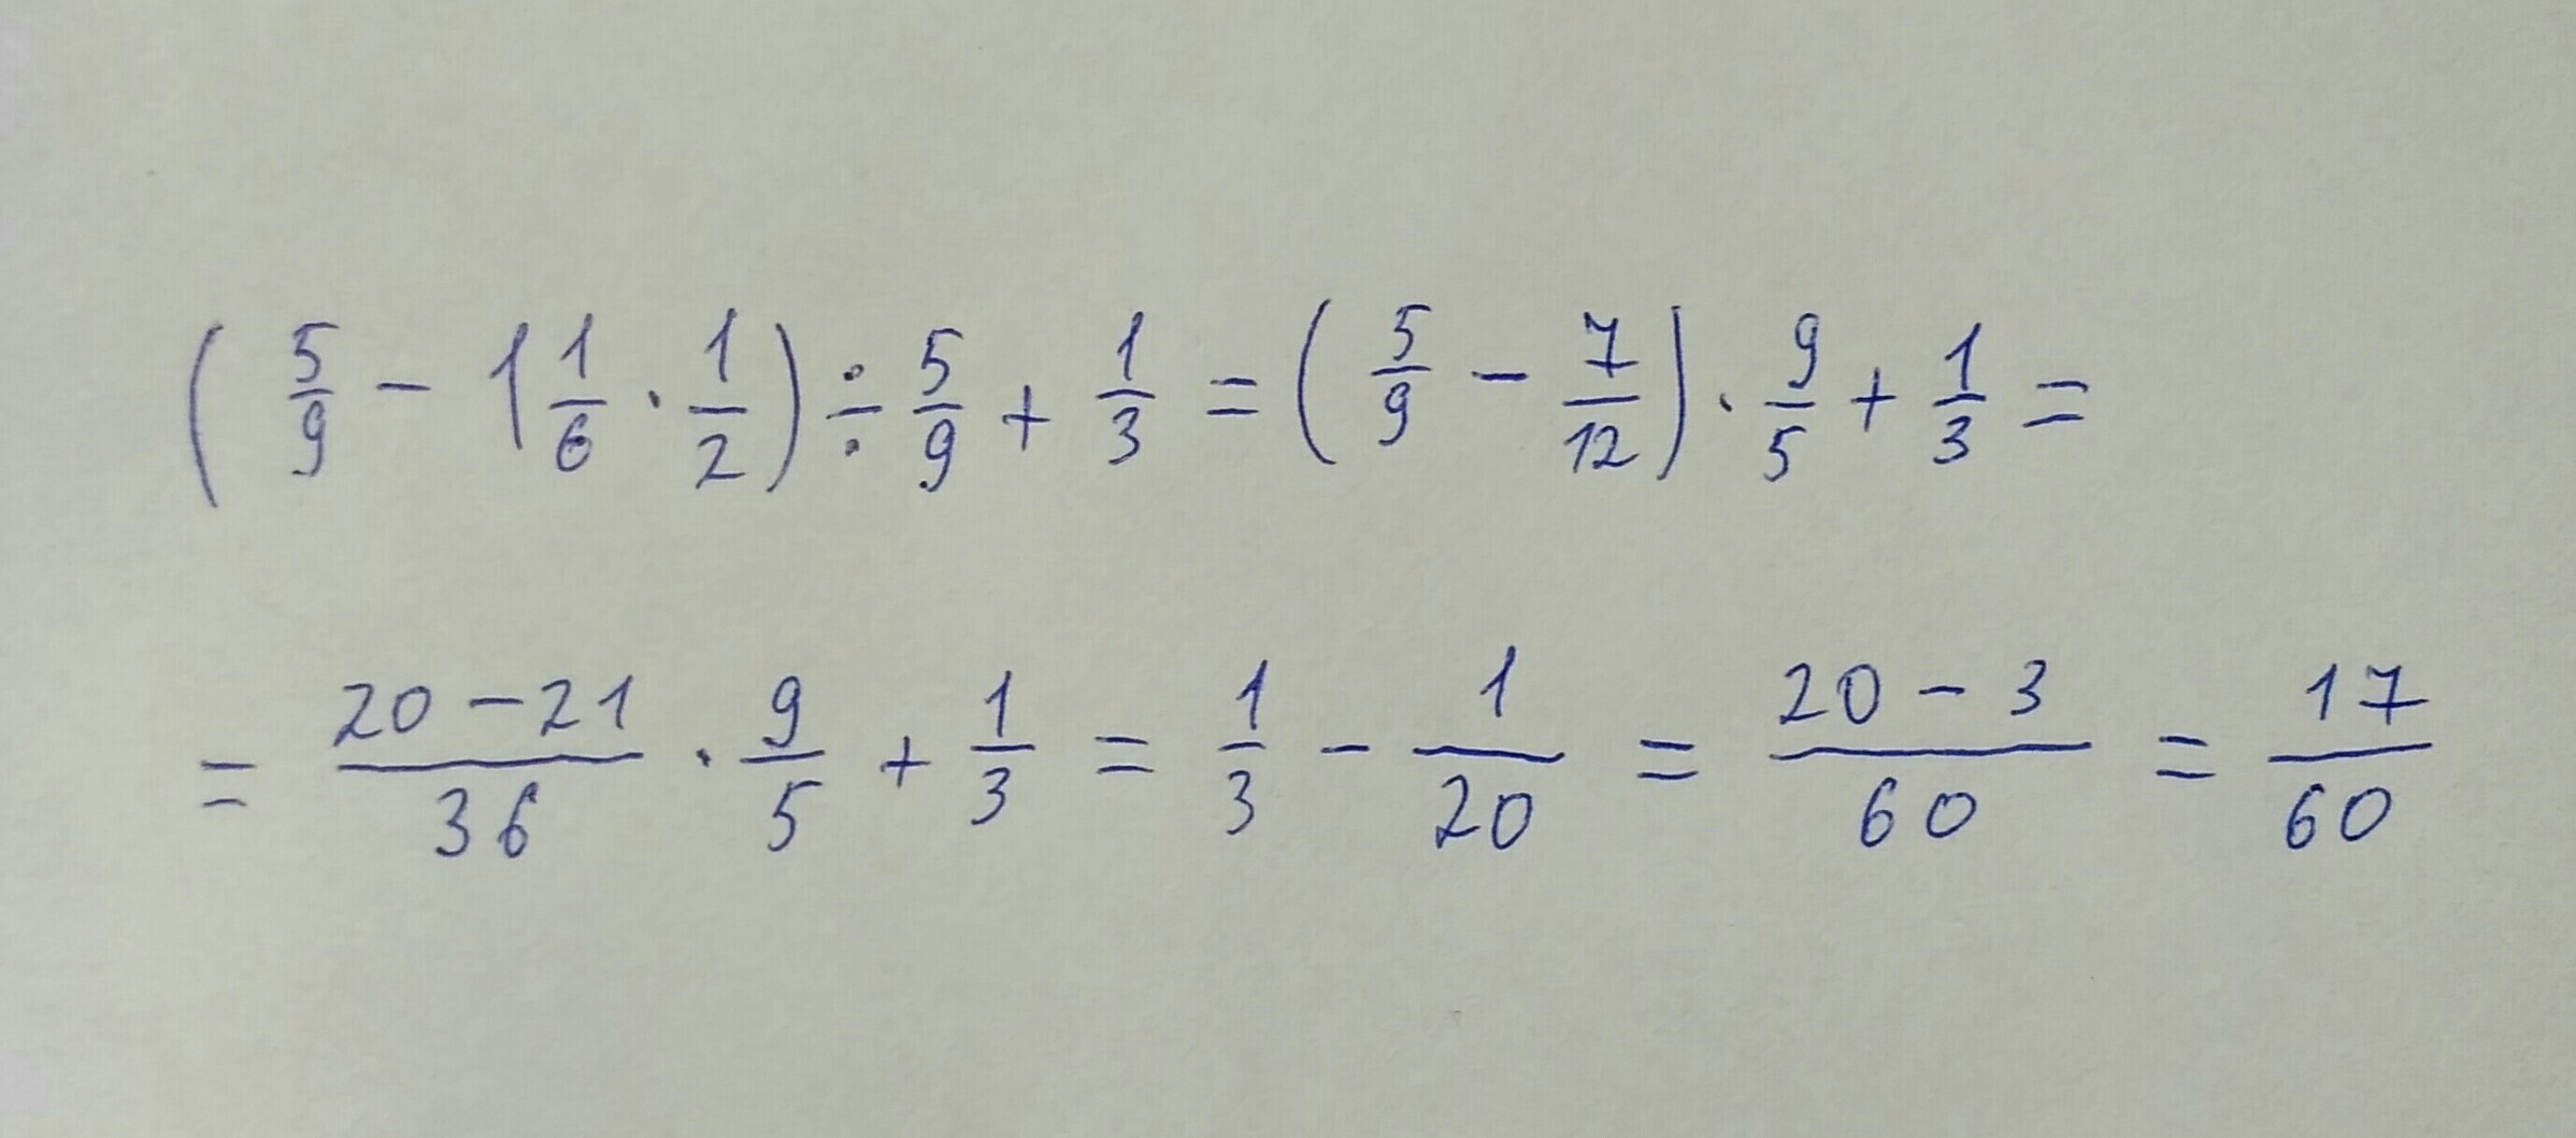 ( 5/9 − 1 1/6 · 1/2 ) ÷ 5/9 + 1/3 = ( 5/9 − 7/12 ) · 9/5 + 1/3 =
= (20 − 21)/36 · 9/5 + 1/3 = 1/3 − 1/20 = (20 − 3)/60 = 17/60